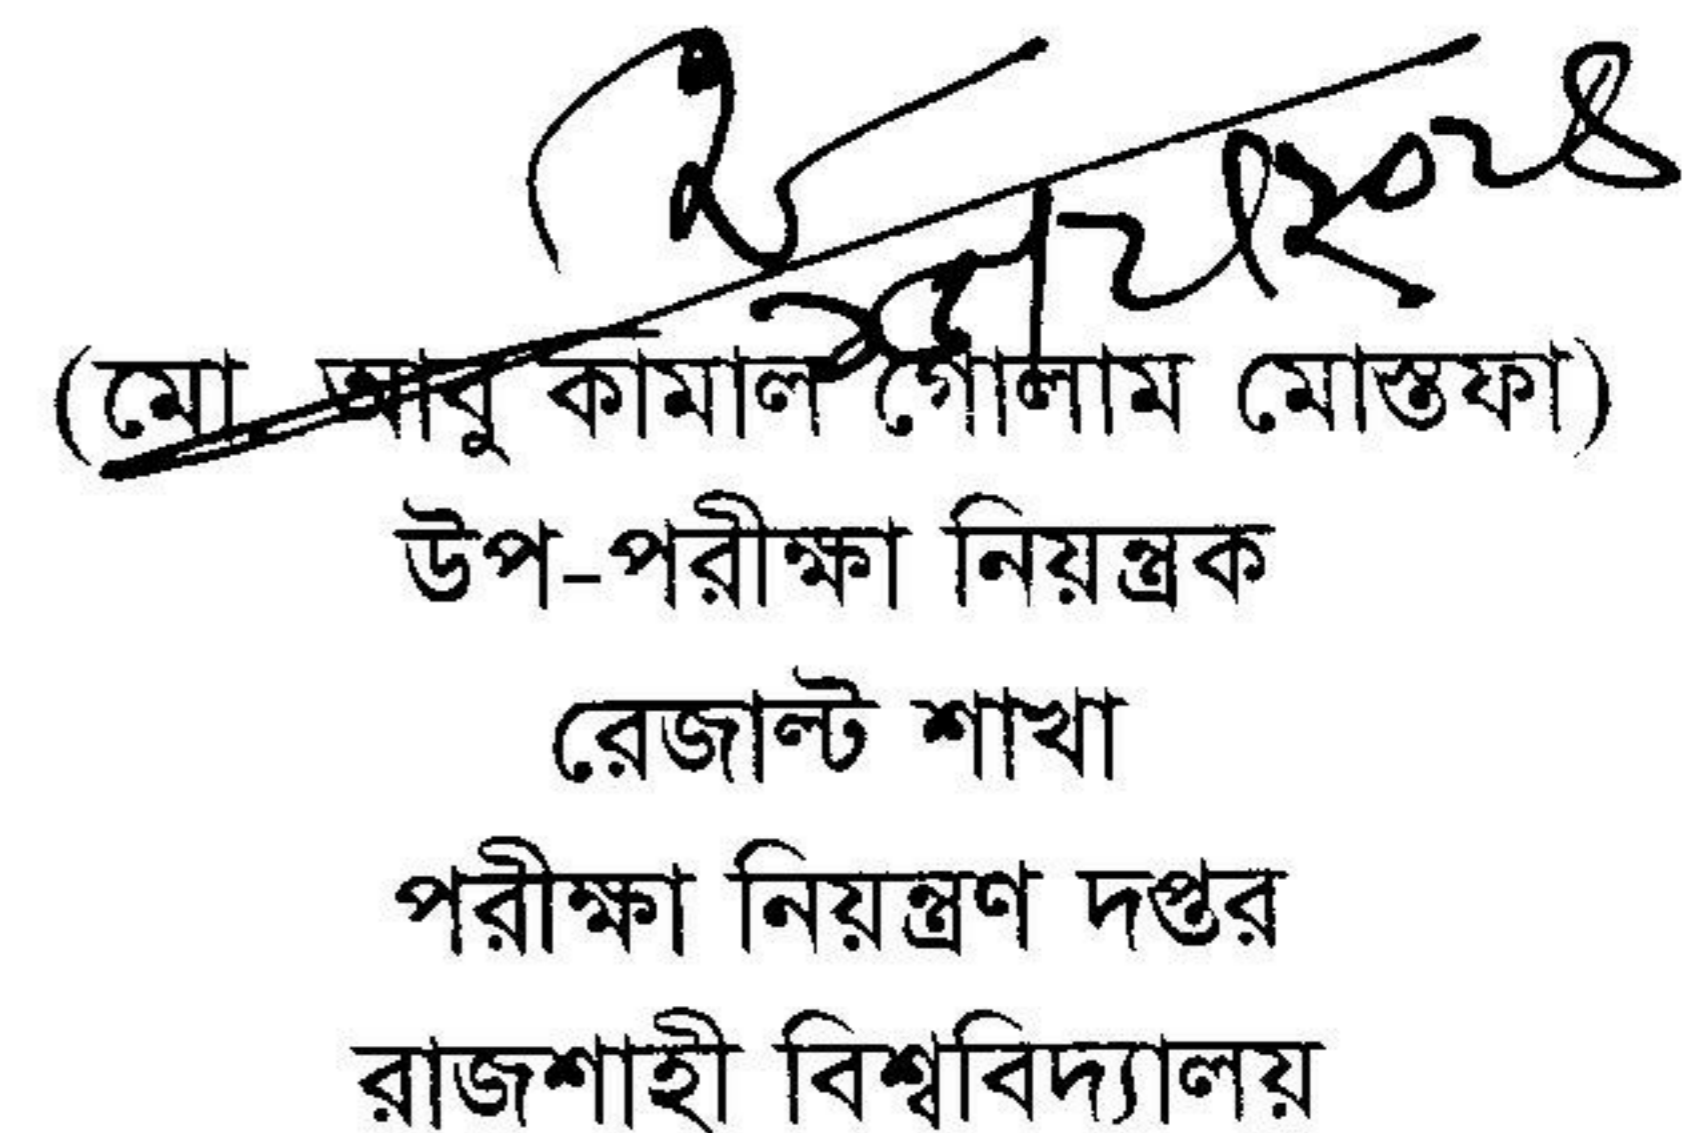 (মো আবু কামাল গোলাম মোস্তফা)
উপ-পরীক্ষা নিয়ন্ত্রক
রেজাল্ট শাখা
পরীক্ষা নিয়ন্ত্রণ দপ্তর
রাজশাহী বিশ্ববিদ্যালয়